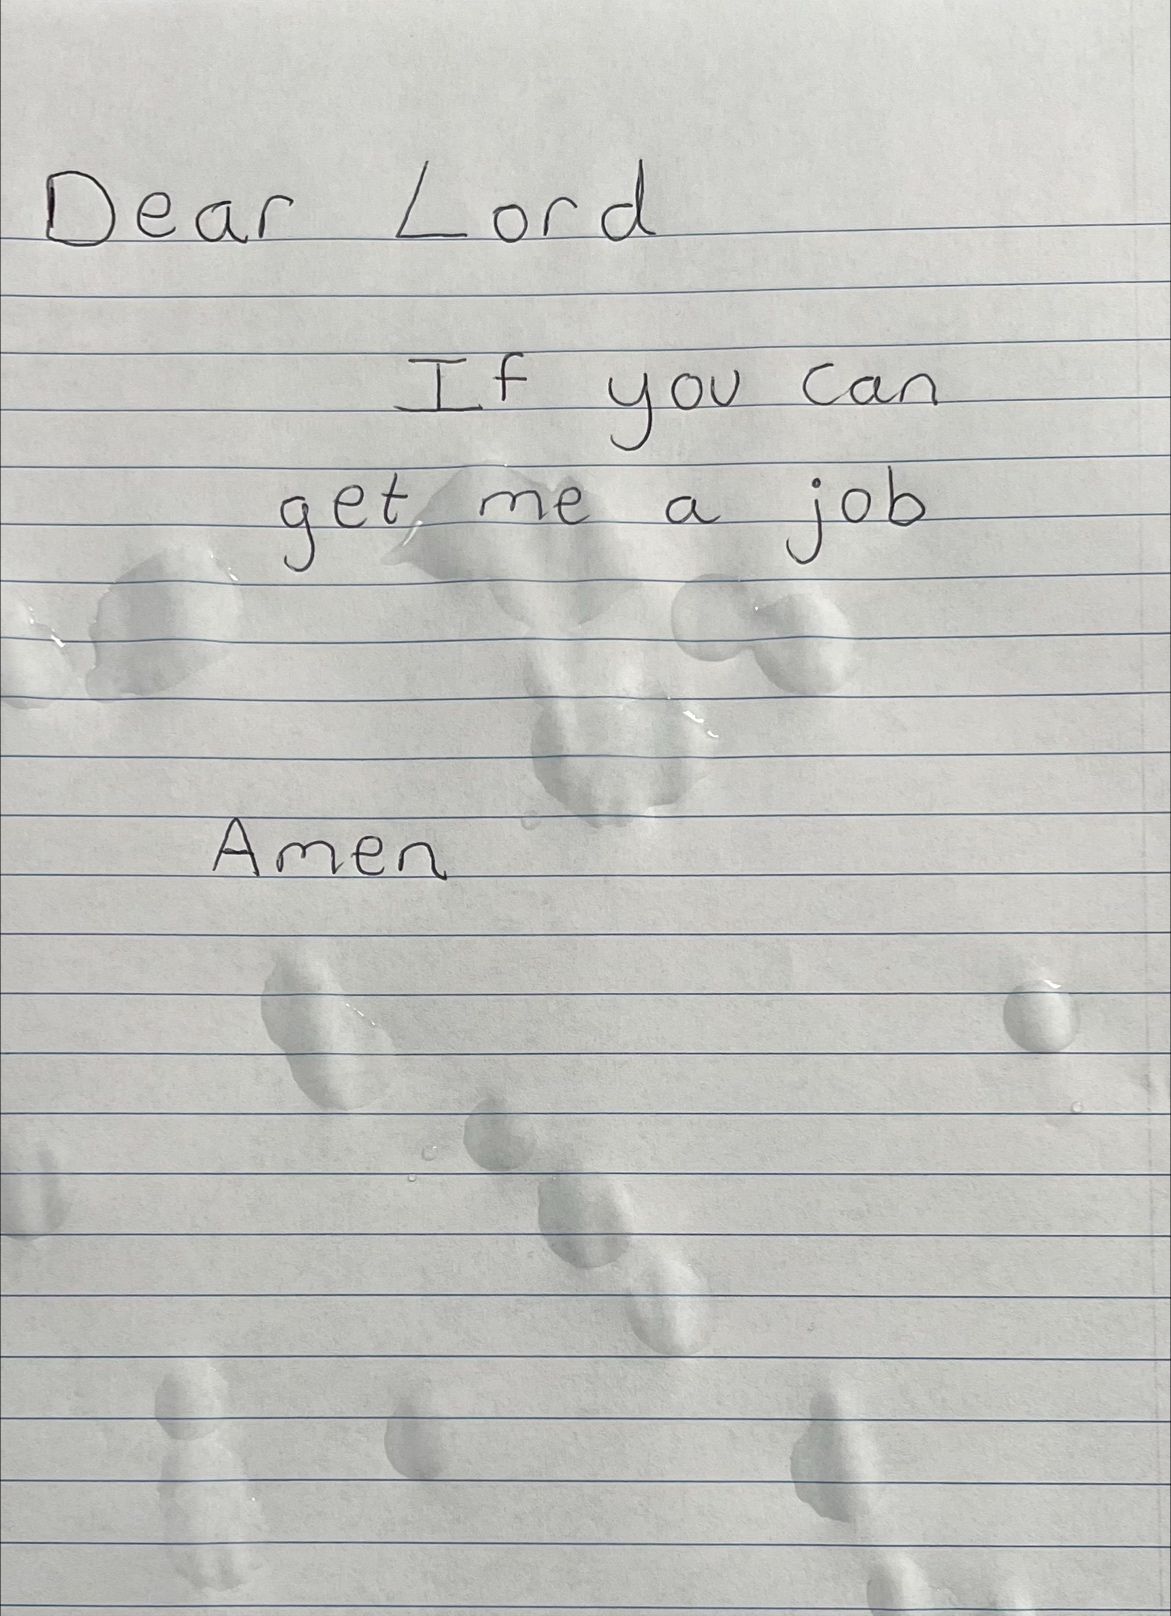 Dear Lord
If you can
get me a job
Amen